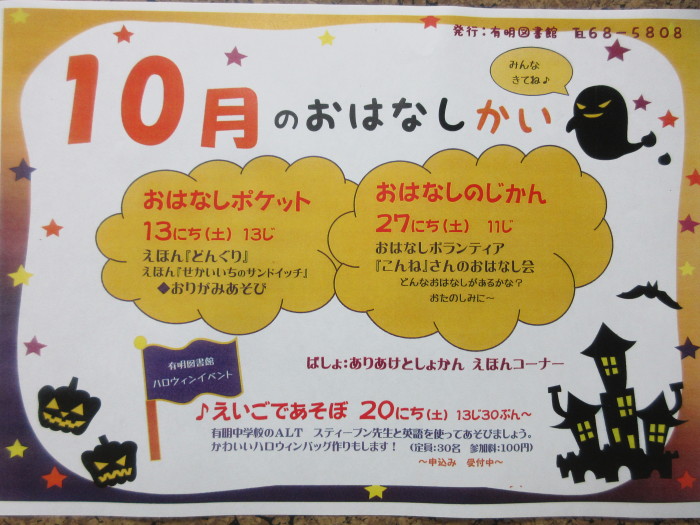 発行:有明図書館 ℡68-5808
みんな
きてね♪
10月のおはなしかい
おはなしポケット
13にち(土) 13じ
えほん『どんぐり』
えほん『せかいいちのサンドイッチ』
◆おりがみあそび
おはなしのじかん
27にち(土) 11じ
おはなしボランティア
『こんね』さんのおはなし会
どんなおはなしがあるかな?
おたのしみに~
有明図書館
ハロウィンイベント
ばしょ:ありあけとしょかん えほんコーナー
♪えいごであそぼ 20にち(土) 13じ30ぷん~
有明中学校のALT スティーブン先生と英語を使ってあそびましょう。
かわいいハロウィンバッグ作りもします! (定員:30名 参加料:100円)
~申込み 受付中~